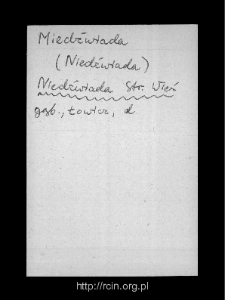 Miedźwiada
(Niedźwiada)
Niedźwiada Str. Wieś
gąb., Łowicz, d
http://rcin.org.pl